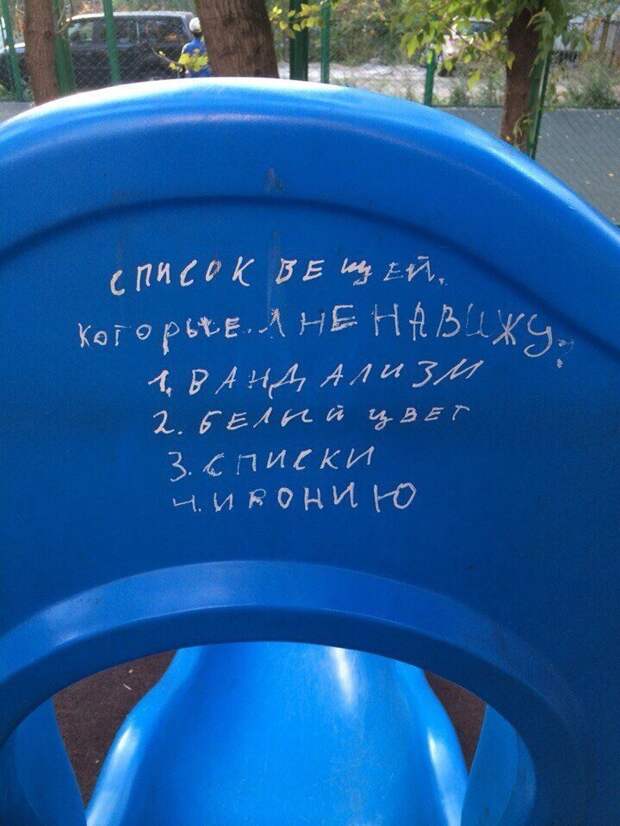 СПИСОК ВЕЩЕЙ,
КОТОРЫЕ Я НЕНАВИЖУ:
1. ВАНДАЛИЗМ
2. БЕЛЫЙ ЦВЕТ
3. СПИСКИ
4. ИРОНИЮ